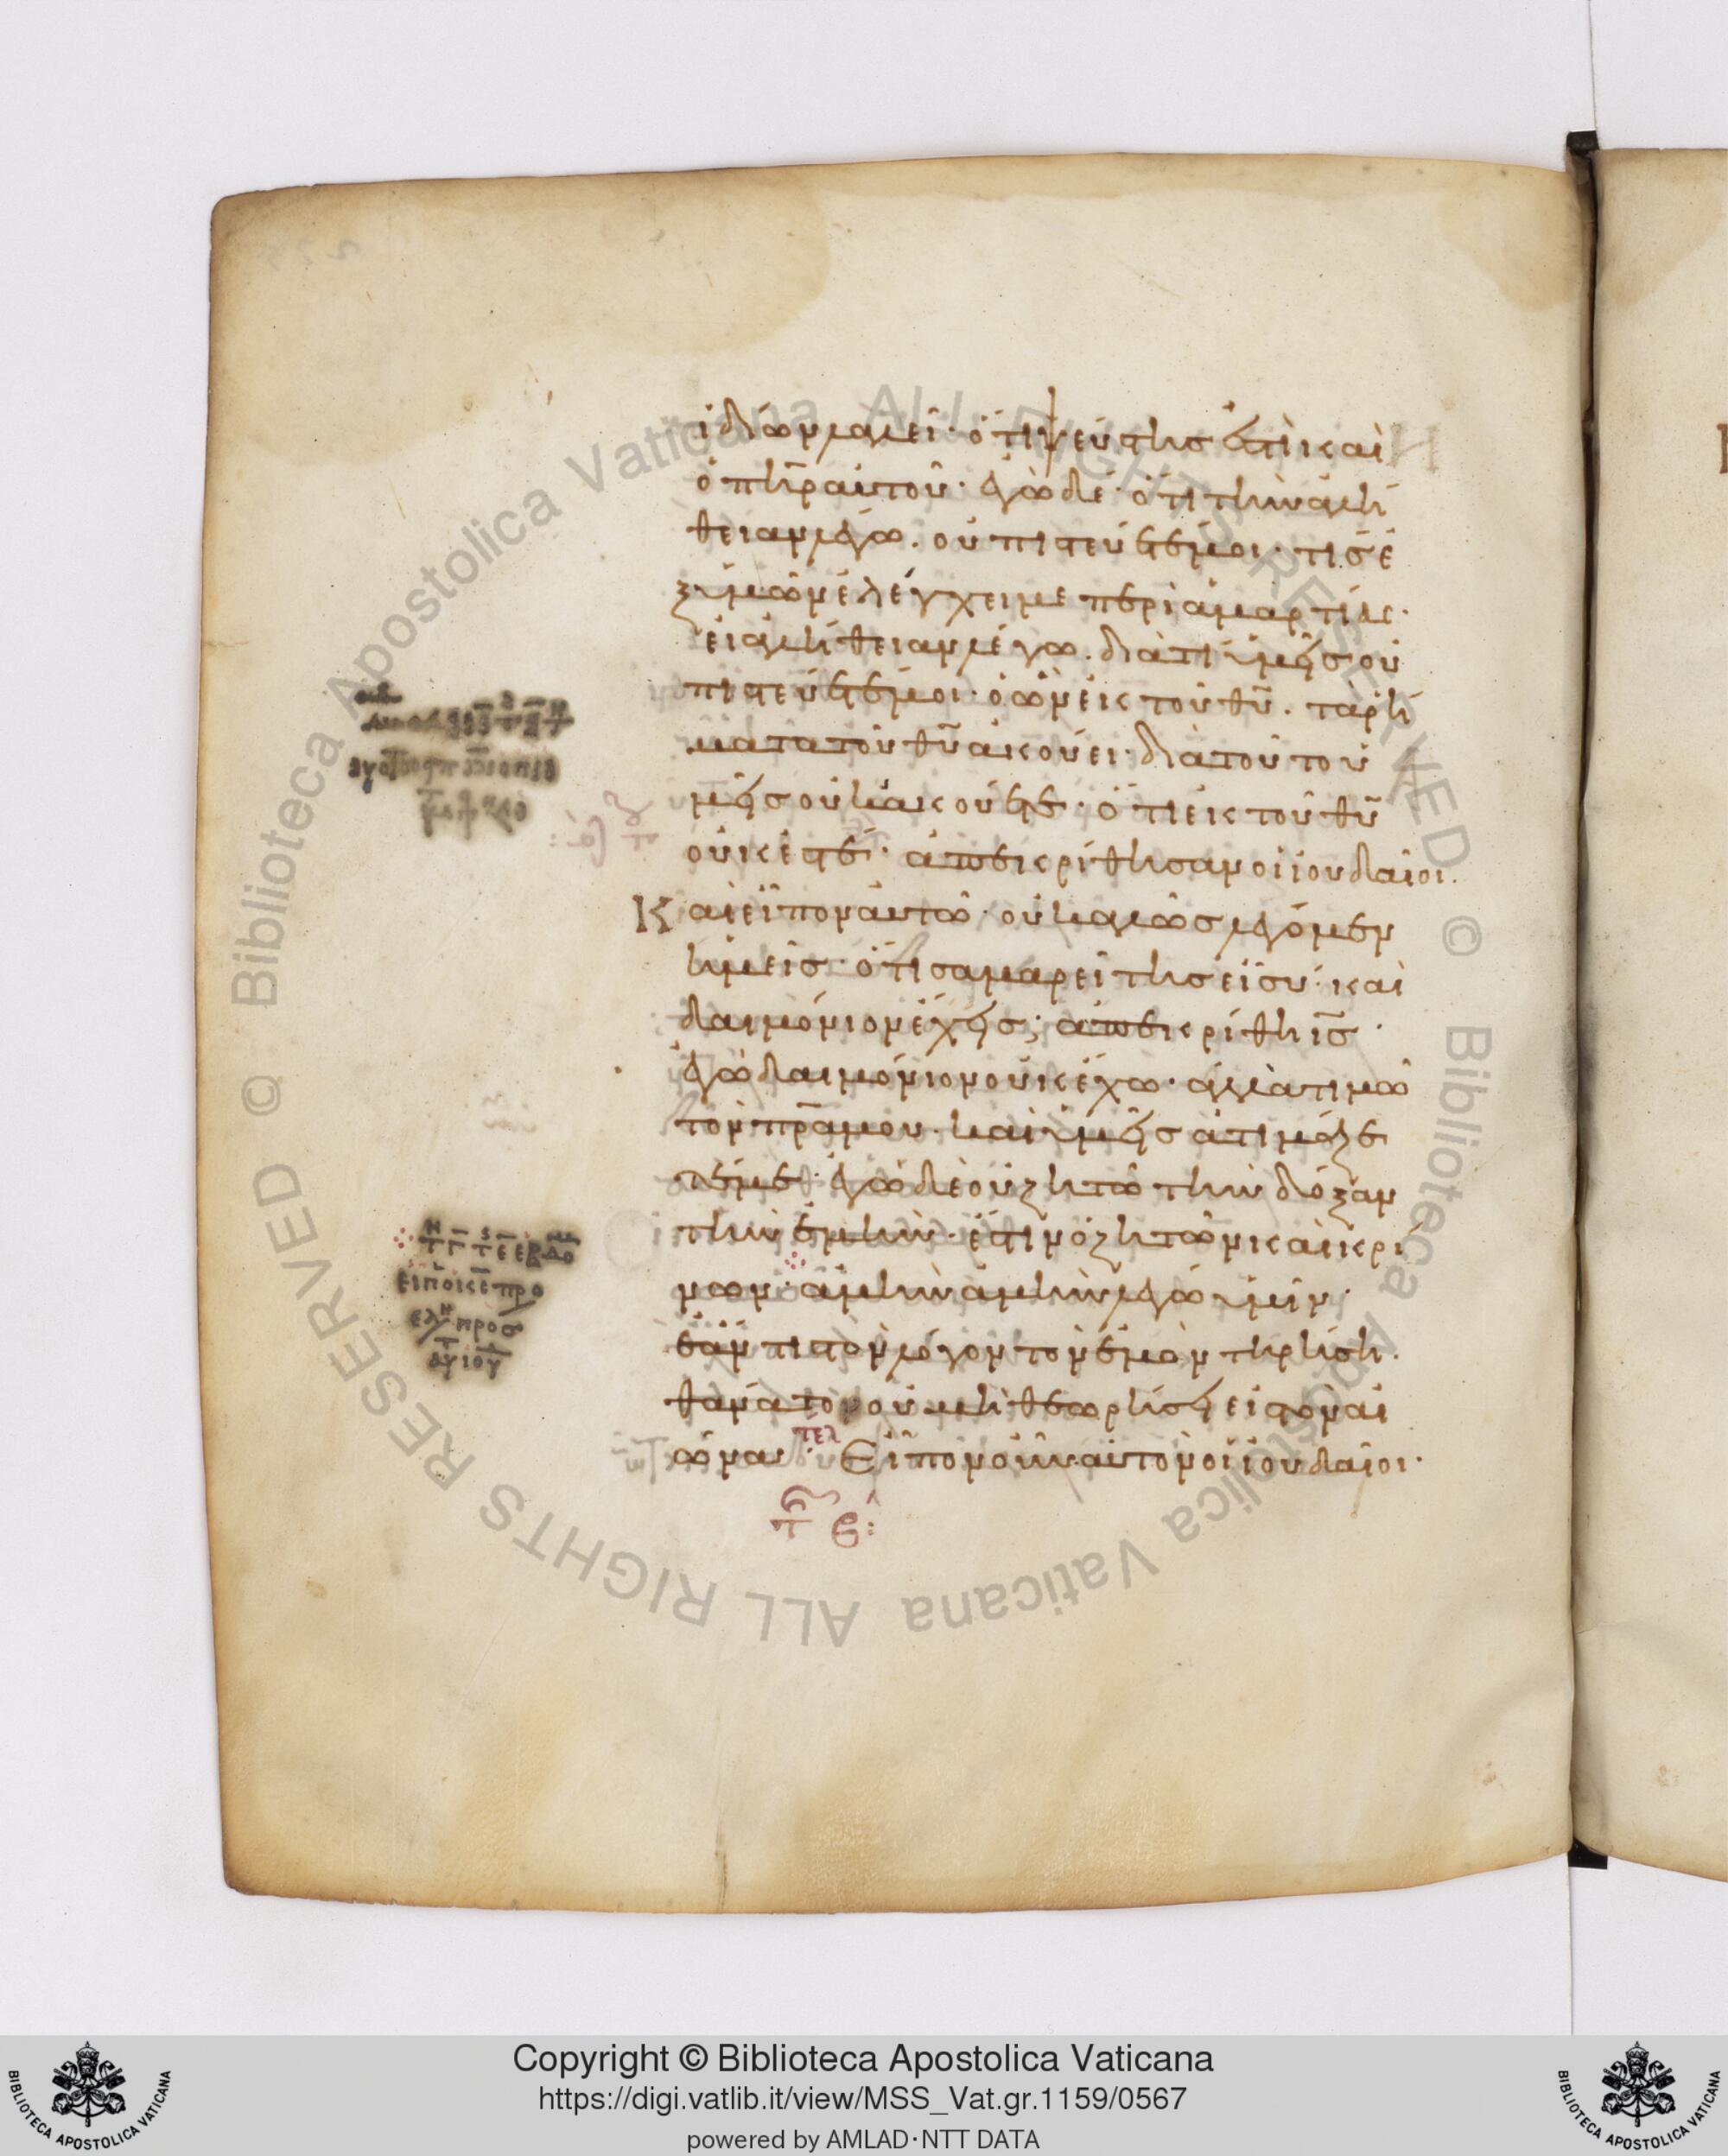 ἰδίων λαλεῖ· ὅτι ψεύστης ἐστὶ καὶ
ὁ πη̅ρ αὐτοῦ· ἐγὼ δὲ· ὅτι τὴν ἀλή
θειαν λέγω· οὐ πιστεύετέ μοι· τίς ἐ
ξ ὑμῶν ἐλέγχει με περὶ ἁμαρτίας·
εἰ ἀλήθειαν λέγω· διατί ὑμεῖς οὐ
πιστεύετέ μοι· ὁ ὢν ἐκ τοῦ θυ̅· τὰ ῥή
ματα τοῦ θυ̅ ἀκούει· διατοῦτο ὑ
μεῖς οὐκ ἀκούετε· ὅτι ἐκ τοῦ θυ̅
οὐκ ἐστέ· ἀπεκρίθησαν οἱ ἰουδαῖοι·
Καὶ εἶπον αὐτῶ· οὐ καλῶς λέγομεν
ἡμεῖς· ὅτι σαμαρείτης εἶ σύ· καὶ
δαιμόνιον ἔχεις; ἀπεκρίθη ισ̅·
ἐγὼ δαιμόνιον οὐκ ἔχω· ἀλλὰ τιμῶ
τὸν πρ̅α μου· καὶ ὑμεῖς ἀτιμάζε
τέ με· ἐγὼ δὲ οὐ ζητῶ τὴν δόξαν
τὴν ἐμήν· ἔστιν ὁ ζητῶν καὶ κρί
νων· ἀμὴν ἀμὴν λέγω ὑμῖν·
ἐάν τις τὸν λόγον τὸν ἐμὸν τηρήση·
θάνατον οὐ μὴ θεωρήσει εἰς τὸν αἰ
ῶνα· τελ Εἶπον οὖν αὐτὸν οἱ ἰουδαῖοι·
εἶπ ὁ κς̅ προ
προσ
Copyright © Biblioteca Apostolica Vaticana
https://digi.vatlib.it/view/MSS_Vat.gr.1159/0567
powered by AMLAD·NTT DATA
BIBLIOTECA APOSTOLICA VATICANA
BIBLIOTECA APOSTOLICA VATICANA
© Biblioteca Apostolica Vaticana ALL RIGHTS RESERVED
© Biblioteca Apostolica Vaticana ALL RIGHTS RESERVED